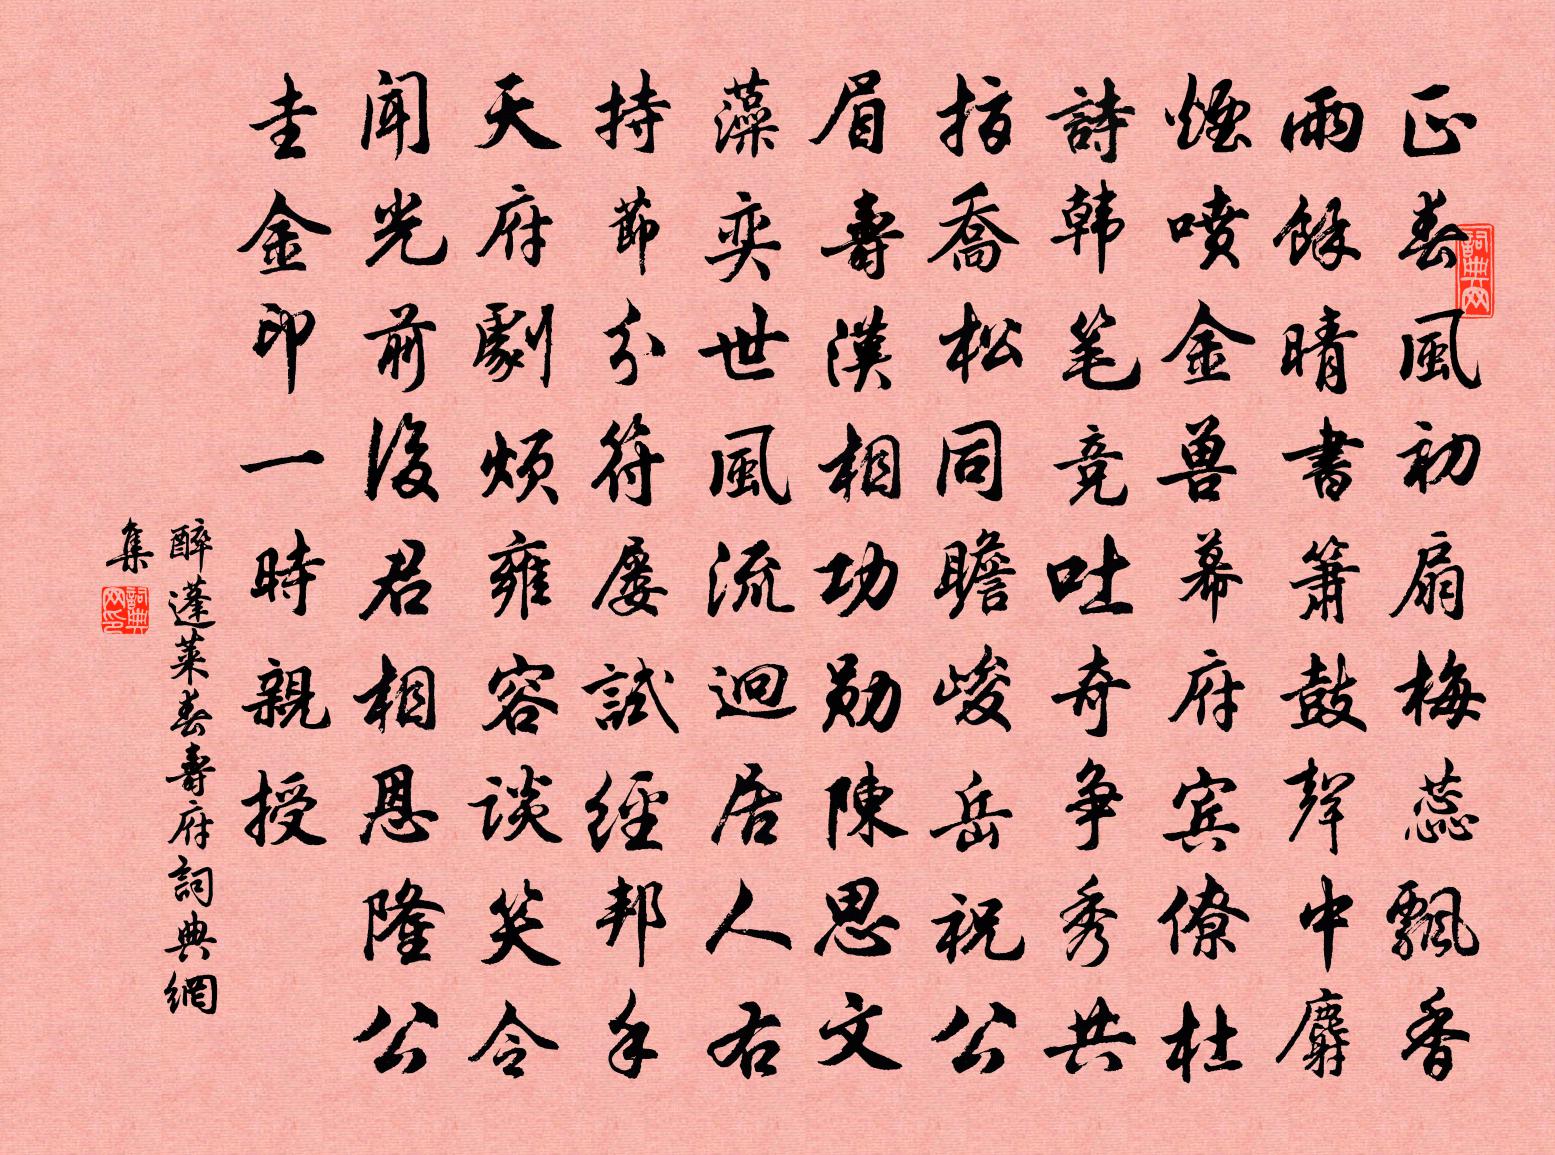 正春風初扇梅蕊飄香
雨餘晴書簫鼓聲中麝
煙噴金兽幕府宾僚杜
詩韩笔竞吐奇争秀共
指喬松同瞻峻岳祝公
眉壽漢相功勋陳思文
藻奕世風流迴居人右
持節分符屡試經邦手
天府劇烦雍容談笑令
聞光前後君相恩隆公
圭金印一時親授
醉蓬萊春壽府詞典網
集
詞典网
詞典网印